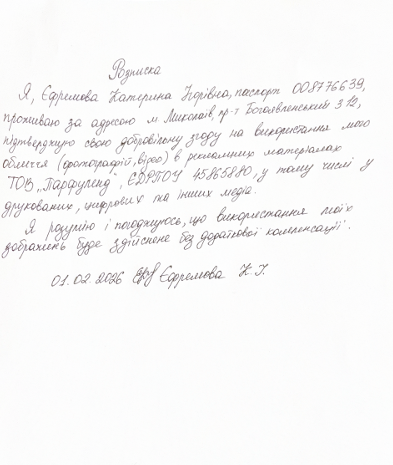 Розписка
Я, Єфремова Катерина Ігорівна, паспорт 008776639,
проживаю за адресою м Миколаїв, пр-т Богоявленський 312,
підтверджую свою добровільну згоду на використання мого
обличчя (фотографій, відео) в рекламних матеріалах
ТОВ "Парфуленд", ЄДРПОУ 45865880, у тому числі у
друкованих, цифрових та інших медіа.
Я розумію і погоджуюсь, що використання моїх
зображень буде здійснене без додаткової компенсації.
01.02.2026 Єфремова К. І.